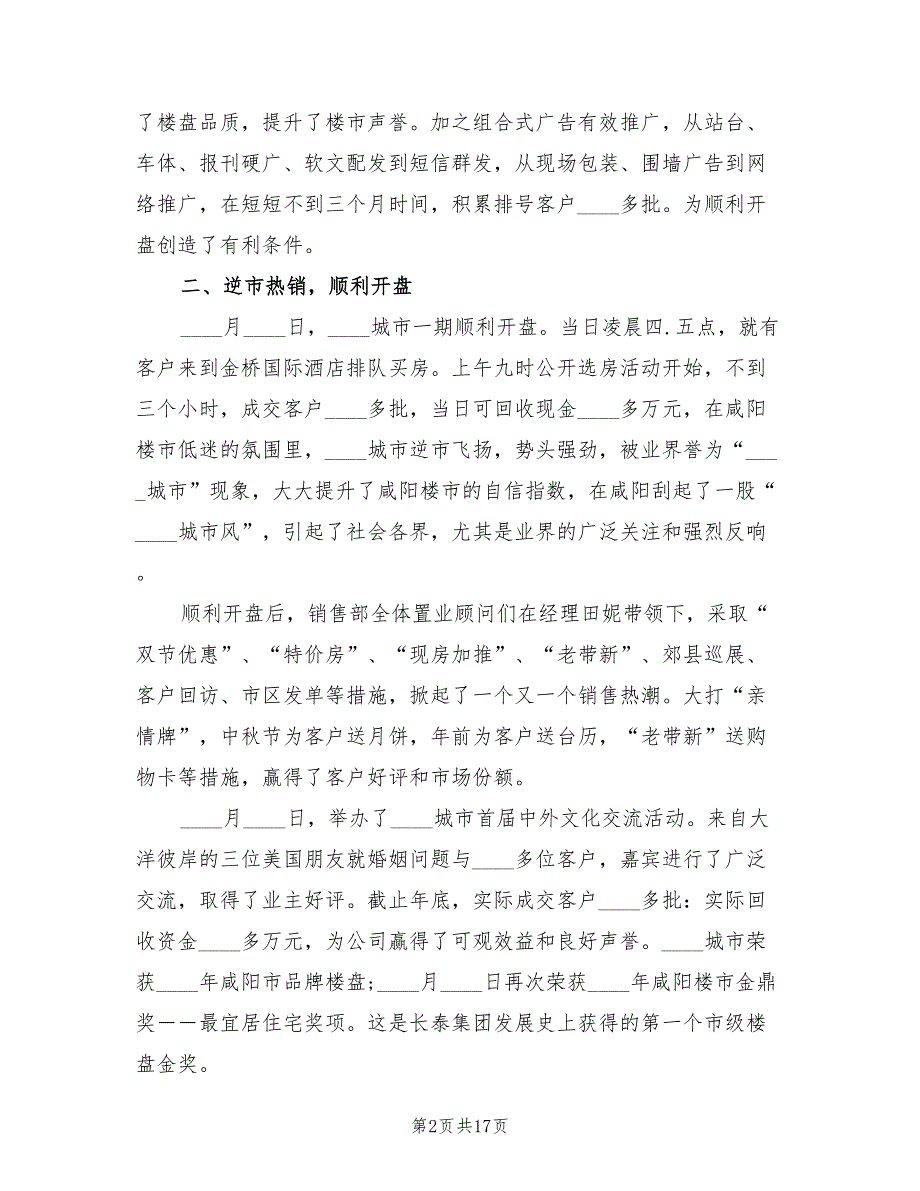 了楼盘品质，提升了楼市声誉。加之组合式广告有效推广，从站台、
车体、报刊硬广、软文配发到短信群发，从现场包装、围墙广告到网
络推广，在短短不到三个月时间，积累排号客户____多批。为顺利开
盘创造了有利条件。
二、逆市热销，顺利开盘
____月____日，____城市一期顺利开盘。当日凌晨四.五点，就有
客户来到金桥国际酒店排队买房。上午九时公开选房活动开始，不到
三个小时，成交客户____多批，当日可回收现金____多万元，在咸阳
楼市低迷的氛围里，____城市逆市飞扬，势头强劲，被业界誉为“___
_城市”现象，大大提升了咸阳楼市的自信指数，在咸阳刮起了一股“
____城市风”，引起了社会各界，尤其是业界的广泛关注和强烈反响
。
顺利开盘后，销售部全体置业顾问们在经理田妮带领下，采取“
双节优惠”、“特价房”、“现房加推”、“老带新”、郊县巡展、
客户回访、市区发单等措施，掀起了一个又一个销售热潮。大打“亲
情牌”，中秋节为客户送月饼，年前为客户送台历，“老带新”送购
物卡等措施，赢得了客户好评和市场份额。
____月____日，举办了____城市首届中外文化交流活动。来自大
洋彼岸的三位美国朋友就婚姻问题与____多位客户，嘉宾进行了广泛
交流，取得了业主好评。截止年底，实际成交客户____多批：实际回
收资金____多万元，为公司赢得了可观效益和良好声誉。____城市荣
获____年咸阳市品牌楼盘;____月____日再次荣获____年咸阳楼市金鼎
奖——最宜居住宅奖项。这是长泰集团发展史上获得的第一个市级楼
盘金奖。
第2页共17页